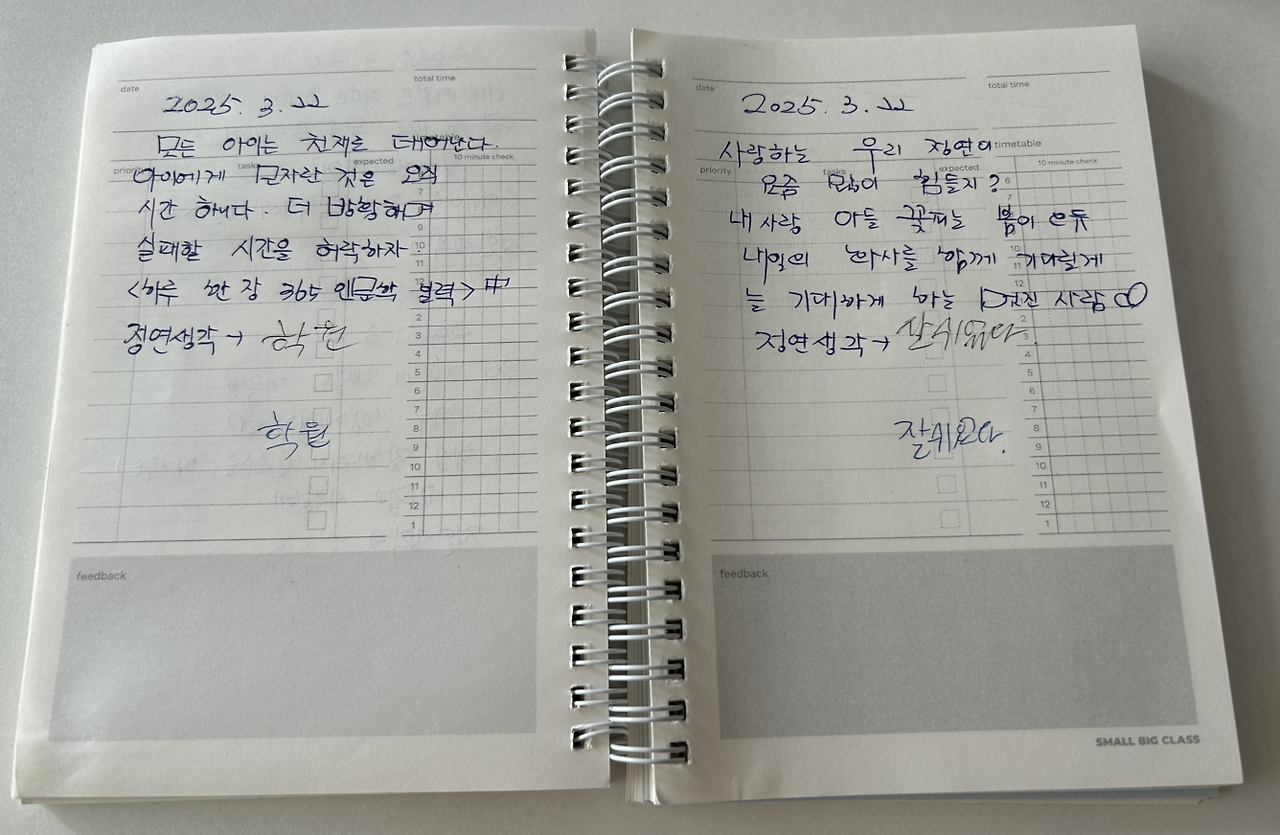 date
total time
2025. 3. 22
모든 아이는 천재로 태어난다.
timetable
priority
tasks
expected
10 minute check
아이에게 모자란 것은 오직
7
시간 하나다. 더 방황하며
9
실패할 시간을 허락하자.
10
11
<하루 한 장 365 인문학 달력> 中
12
2
정연생각 → 학원
3
4
5
6
7
학원
8
9
10
11
12
1
feedback
date
total time
2025. 3. 22
사랑하는 우리 정연이
timetable
priority
tasks
expected
10 minute check
요즘 많이 힘들지?
6
7
내 사랑 아들 꽃피는 봄이 오듯
내일의 화사를 함께 기다릴게
10
11
늘 기대하게 하는 멋진 사람
12
2
정연생각 →
3
4
5
6
7
8
9
10
11
12
1
feedback
SMALL BIG CLASS